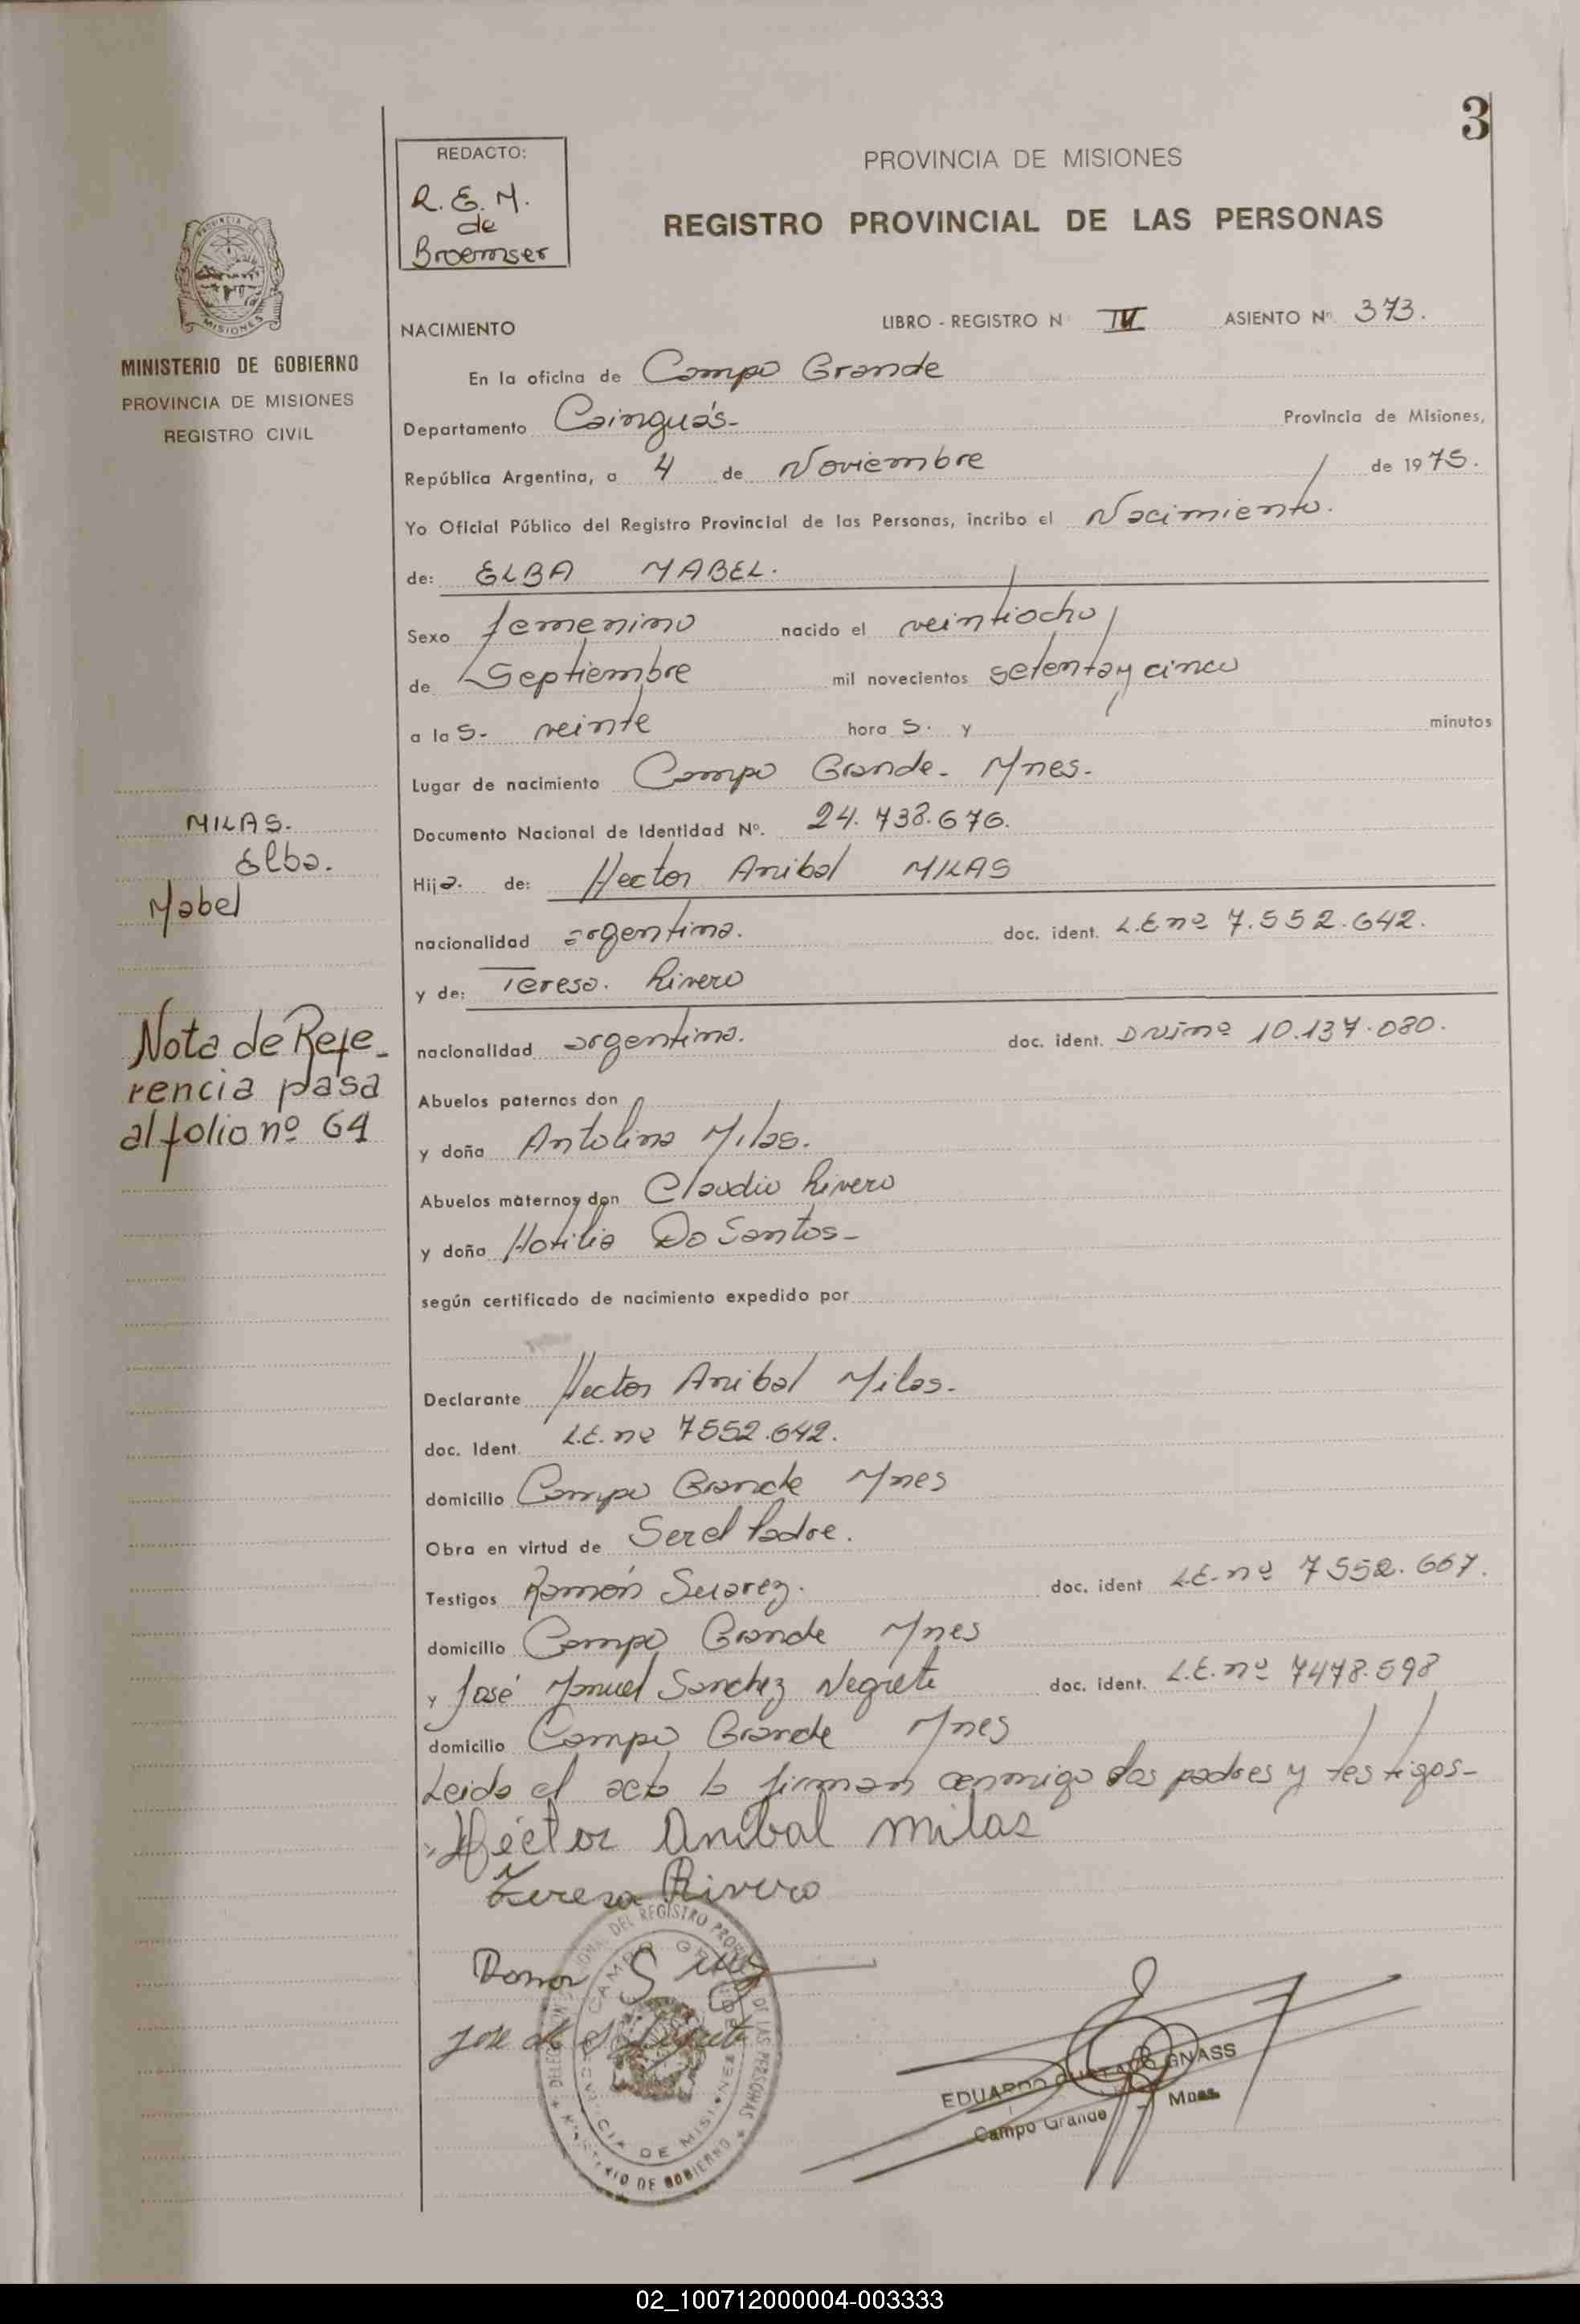 3
REDACTO:
R. E. M.
de
Broemser
PROVINCIA DE MISIONES
REGISTRO PROVINCIAL DE LAS PERSONAS
MINISTERIO DE GOBIERNO
PROVINCIA DE MISIONES
REGISTRO CIVIL
NACIMIENTO LIBRO - REGISTRO N ASIENTO Nº 373.
En la oficina de Campo Grande
Departamento Cainguás- Provincia de Misiones,
República Argentina, a 4 de Noviembre de 1975.
Yo Oficial Público del Registro Provincial de las Personas, incribo el Nacimiento.
de: ELBA MABEL.
Sexo femenino nacido el veintiocho
de Septiembre mil novecientos setenta y cinco
a las- veinte hora s. y minutos
Lugar de nacimiento Campo Grande- Mnes-
Documento Nacional de Identidad Nº. 24.738.676.
Hija. de: Hector Anibal MILAS
nacionalidad argentina. doc. ident. L.E nº 7.552.642.
y de: Teresa. Rivero
nacionalidad argentina. doc. ident. 10.137.080.
Abuelos paternos don
y doña Antolina Milas.
Abuelos maternos don Claudio Rivero
y doña Hotilia Do Santos-
según certificado de nacimiento expedido por
Declarante Hector Anibal Milas-
doc. Ident. L.E. nº 7552.642.
domicilio Campo Grande Mnes
Obra en virtud de Ser el Padre.
Testigos Ramón Suarez. doc. ident L.E. nº 7552.667.
domicilio Campo Grande Mnes
y José Manuel Sanchez Negrete doc. ident. L.E. nº 7478.598
domicilio Campo Grande Mnes
Leida el acta la firman conmigo los padres y testigos-
Héctor Anibal milas
Teresa Rivero
MILAS.
Elba.
Mabel
Nota de Refe-
rencia pasa
al folio nº 64
CAMPO GRANDE
PROVINCIA DE MISIONES
MINISTERIO DE GOBIERNO
EDUARDO GUSTAVO GNASS
Campo Grande - Mnes.
02_100712000004-003333